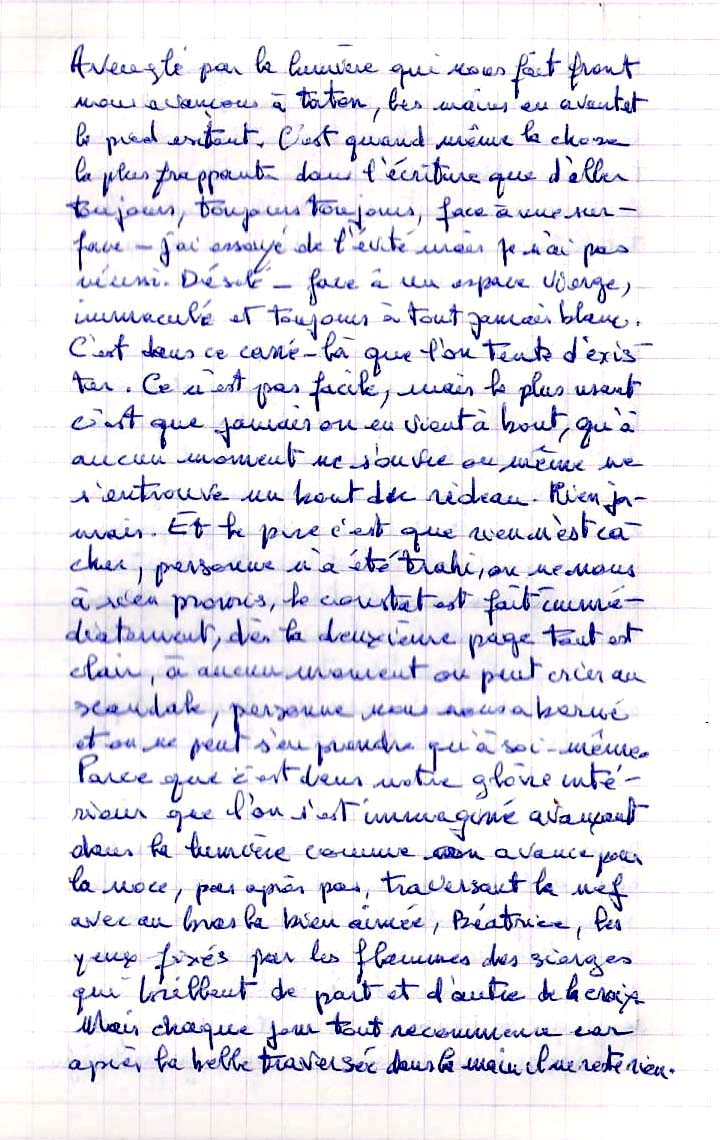 Aveuglé par la lumière qui nous fait front
nous avançons à taton, les mains en avant et
le pied esitant. C'est quand même la chose
la plus frappante dans l'écriture que d'aller
toujours, toujours toujours, face à une sur-
face – j'ai essayé de l'évité mais je n'ai pas
réussi. Désolé – face à un espace vierge,
immaculé et toujours à tout jamais blanc.
C'est dans ce carré-là que l'on tente d'exis-
ter. Ce n'est pas facile, mais le plus usant
c'est que jamais on en vient à bout, qu'à
aucun moment ne s'ouvre ou même ne
s'entrouve un bout de rideau. Rien ja-
mais. Et le pire c'est que rien n'est ca-
cher, personne n'a été trahi, on ne nous
à rien promis, le constat est fait immé-
diatement, dès la deuxième page tout est
clair, à aucun moment on peut crier au
scandale, personne nous a berné
et on ne peut s'en prendre qu'à soi-même.
Parce que c'est dans notre gloire inté-
rieur que l'on s'est immaginé avançant
dans la lumière comme on avance pour
la noce, pas après pas, traversant la nef
avec au bras la bien aimée, Béatrice, les
yeux fixés par les flammes des sierges
qui brillent de part et d'autre de la croix
Mais chaque jour tout recommence car
après la belle traversée dans la main il ne reste rien.